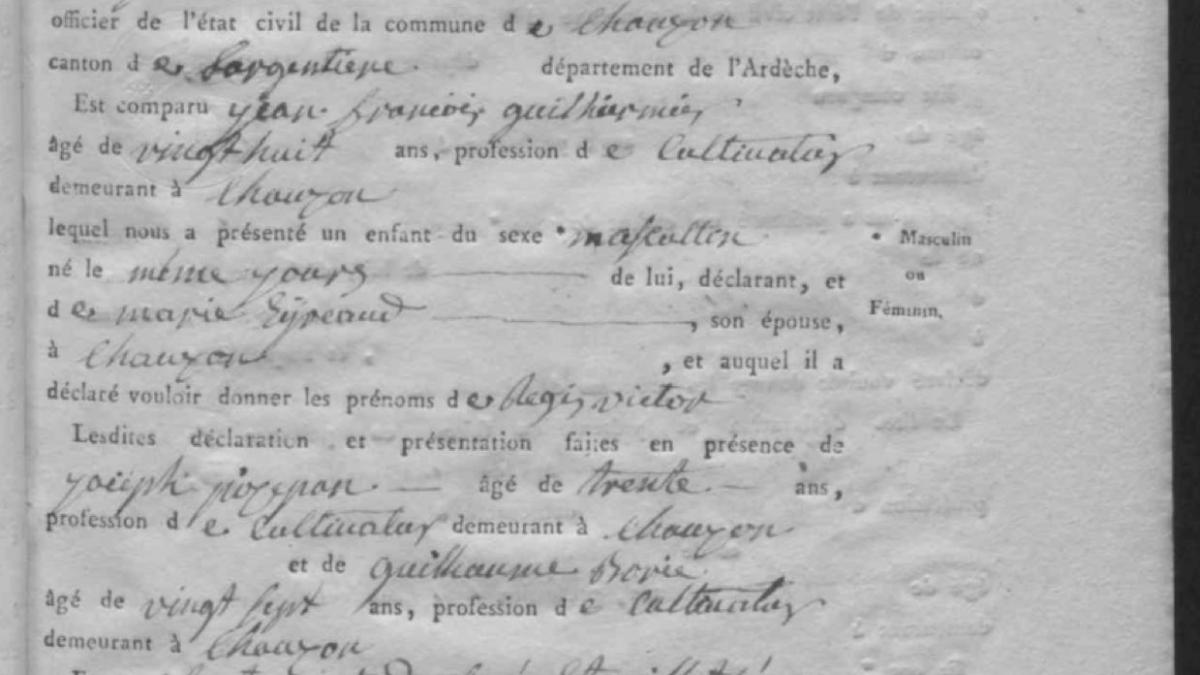 officier de l'état civil de la commune d e Chauzon
canton d e Largentiere département de l'Ardèche,
Est comparu jean françois guilhermies
âgé de vingt huit ans, profession d e Cultivatur
demeurant à Chauzon
lequel nous a présenté un enfant du sexe * masculin * Masculin
né le même yours de lui, déclarant, et ou
d e marie Eyreaud , son épouse, Féminin.
à Chauzon , et auquel il a
déclaré vouloir donner les prénoms d e Regis victor
Lesdites déclaration et présentation faites en présence de
yoseph âgé de trente ans,
profession d e Cultivatur demeurant à Chauzon
et de guilhaume Borie
âgé de vingt sept ans, profession d e Cultivatur
demeurant à Chauzon